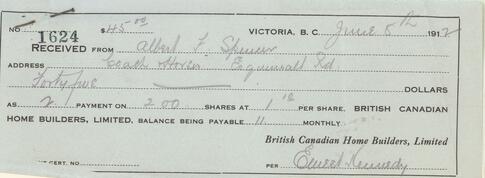 NO. 1624 $45.00 VICTORIA, B. C. June 8th 1912
RECEIVED FROM Albert F. Spencer
ADDRESS Coach Horses Esquimalt Rd.
Forty five DOLLARS
AS 2 PAYMENT ON 200 SHARES AT 1 PER SHARE, BRITISH CANADIAN
HOME BUILDERS, LIMITED, BALANCE BEING PAYABLE 11 MONTHLY.
British Canadian Home Builders, Limited
CERT. NO. PER Ernest Kennedy